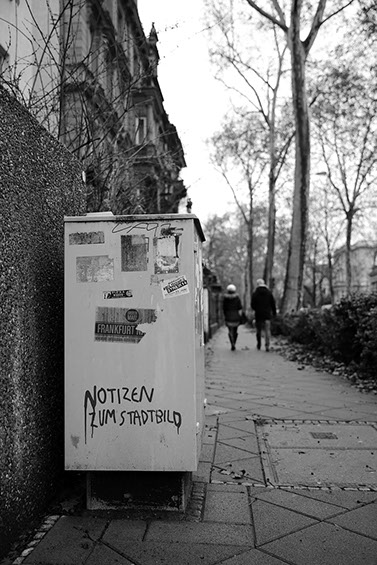 FRANKFURT
NOTIZEN
ZUM STADTBILD